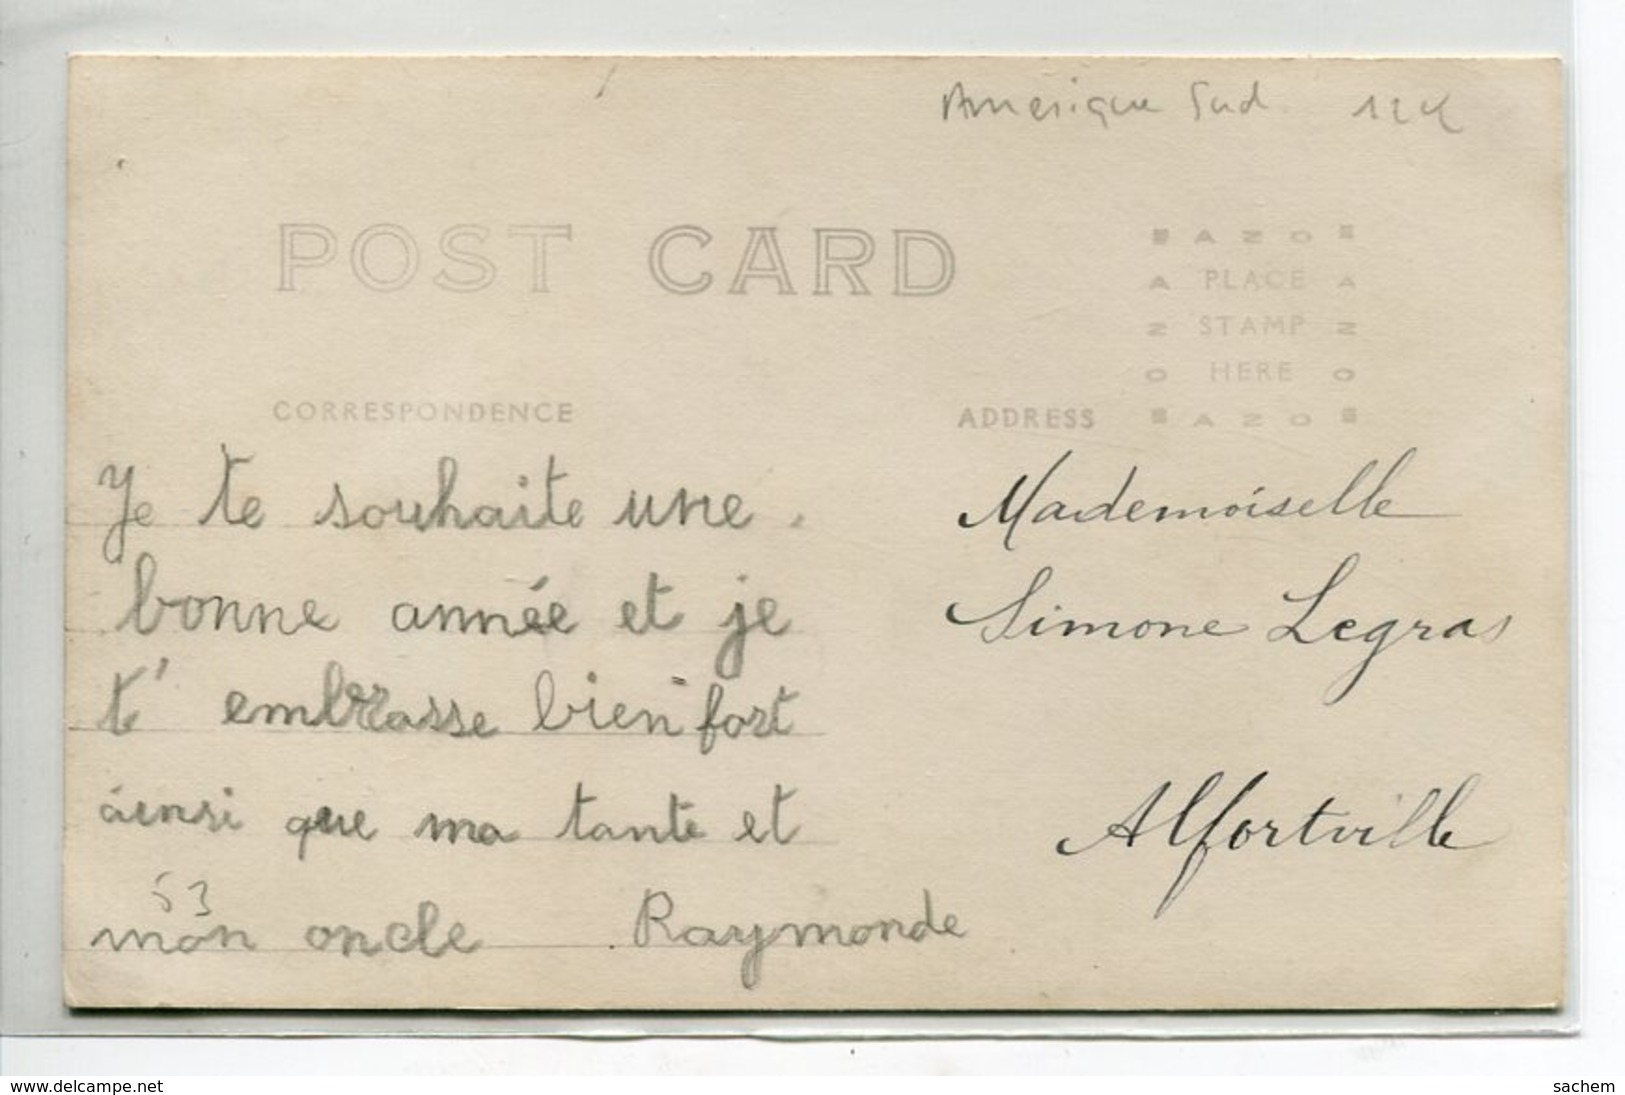 Amerique Sud.
POST CARD
AZO
A PLACE A
Z STAMP Z
O HERE O
AZO
CORRESPONDENCE
ADDRESS
Je te souhaite une
bonne année et je
t' embrasse bien fort
ainsi que ma tante et
53
mon oncle Raymonde
Mademoiselle
Simone Legras
Alfortville
www.delcampe.net
sachem